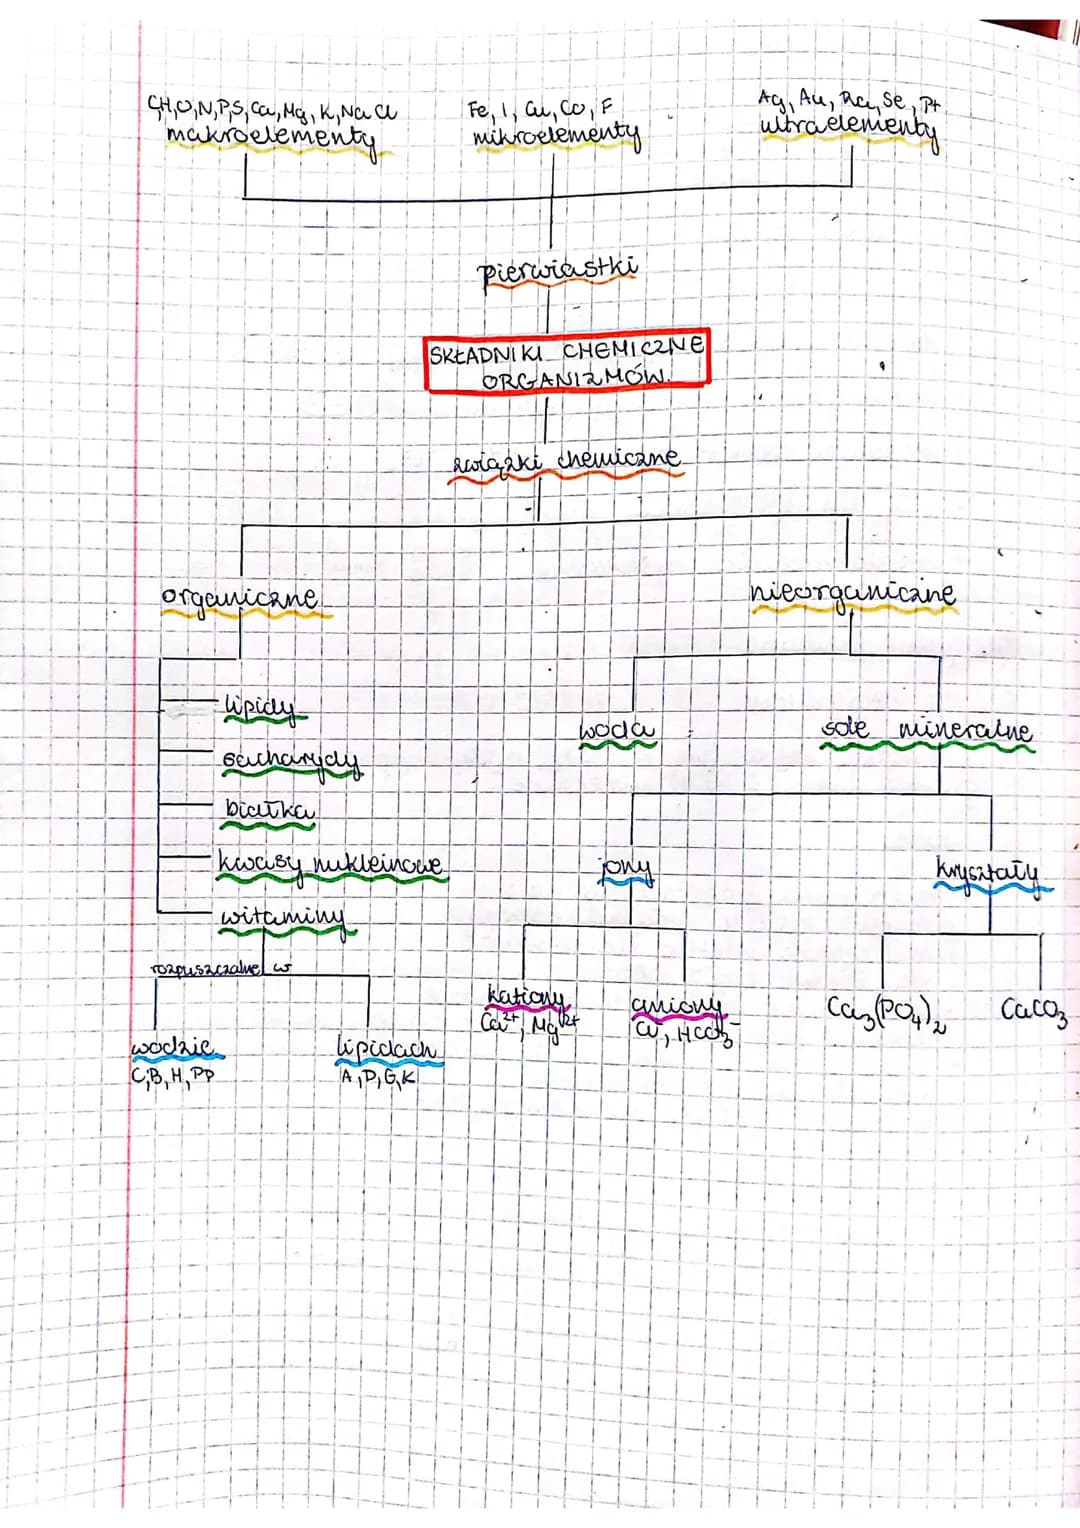 C,H,O,N,P,S,Ca,Mg,K,Na Cl
makroelementy
Fe, I, Cu, Co, F
mikroelementy
Ag, Au, Ra, Se, Pt
ultraelementy
pierwiastki
SKŁADNIKI CHEMICZNE
ORGANIZMÓW.
związki chemiczne
organiczne
nieorganiczne
lipidy
sacharydy
białka
kwasy nukleinowe
witaminy
rozpuszczalne w
wodzie
C,B,H,PP
lipidach
A,D,G,K
woda
sole mineralne
jony
kryształy
kationy
Ca²⁺, Mg²⁺
aniony
Cl⁻, HCO₃⁻
Ca₃(PO₄)₂
CaCO₃